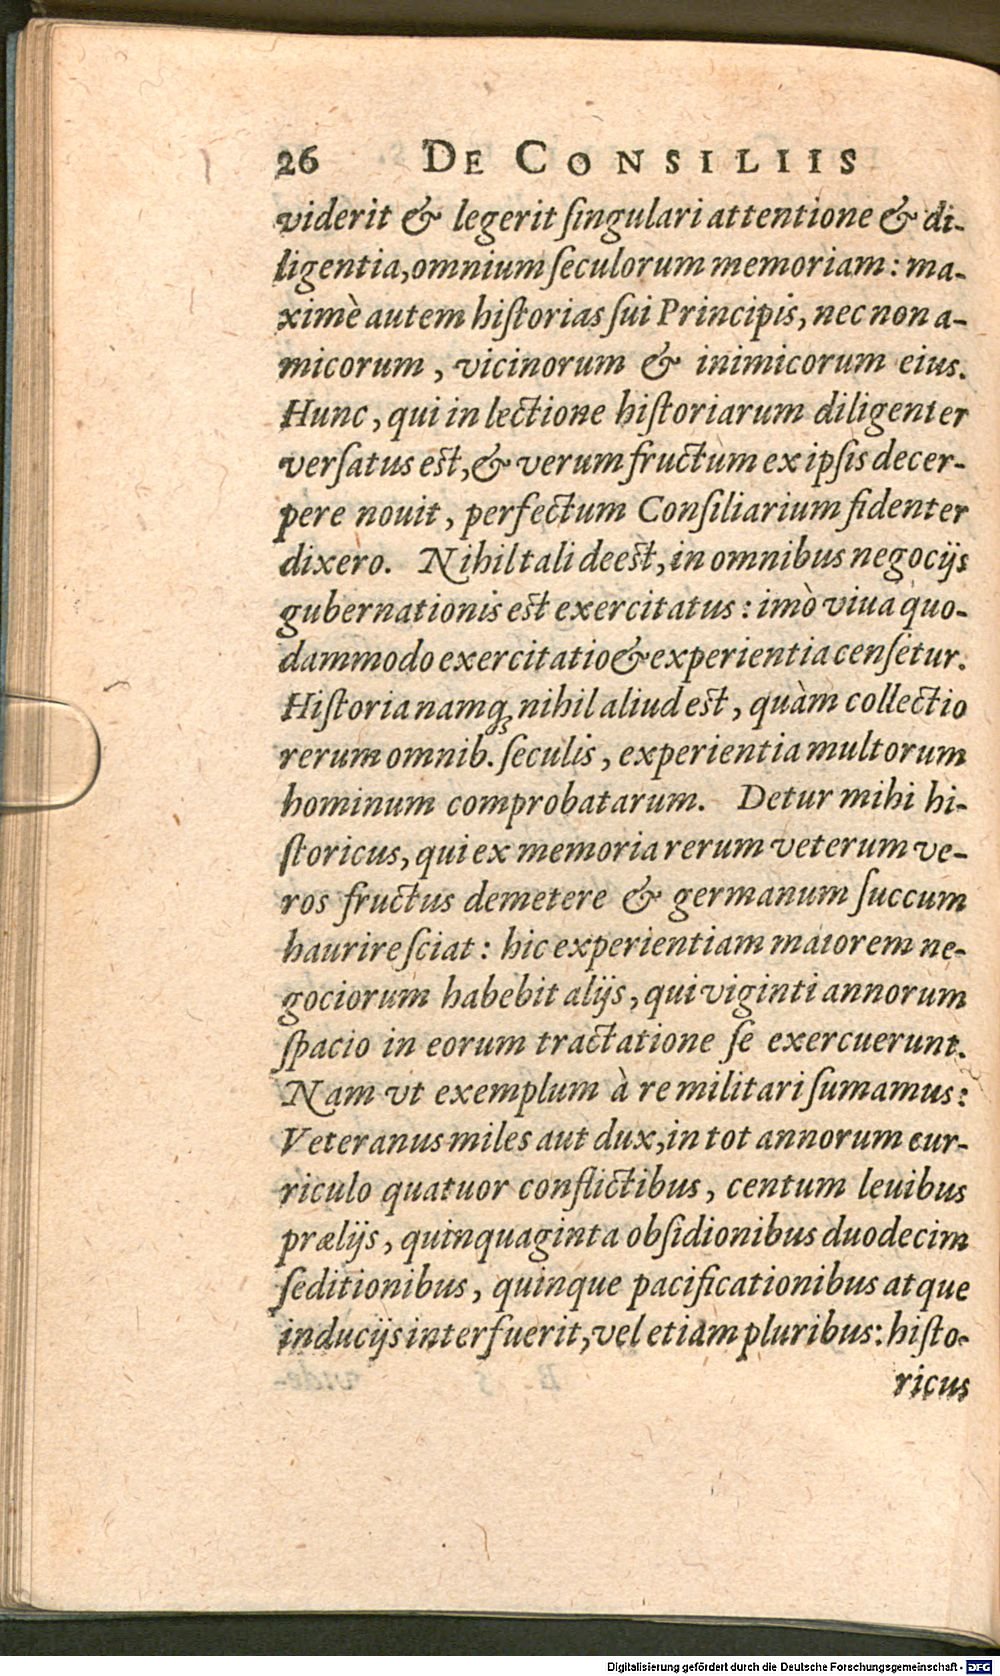 26 DE CONSILIIS
viderit & legerit ſingulari attentione & di-
ligentia, omnium ſeculorum memoriam: ma-
ximè autem hiſtorias ſui Principis, nec non a-
micorum, vicinorum & inimicorum eius.
Hunc, qui in lectione hiſtoriarum diligenter
verſatus est, & verum fructum ex ipſis decer-
pere nouit, perfectum Conſiliarium fidenter
dixero. Nihil tali deest, in omnibus negocijs
gubernationis est exercitatus: imò viua quo-
dammodo exercitatio & experientia cenſetur.
Hiſtoria namq; nihil aliud est, quàm collectio
rerum omnib. ſeculis, experientia multorum
hominum comprobatarum. Detur mihi hi-
ſtoricus, qui ex memoria rerum veterum ve-
ros fructus demetere & germanum ſuccum
haurire ſciat: hic experientiam maiorem ne-
gociorum habebit alijs, qui viginti annorum
ſpacio in eorum tractatione ſe exercuerunt.
Nam vt exemplum à re militari ſumamus:
Veteranus miles aut dux, in tot annorum cur-
riculo quatuor conflictibus, centum leuibus
prælijs, quinquaginta obſidionibus duodecim
ſeditionibus, quinque pacificationibus atque
inducijs interfuerit, vel etiam pluribus: hiſto-
ricus
Digitalisierung gefördert durch die Deutsche Forschungsgemeinschaft - DFG